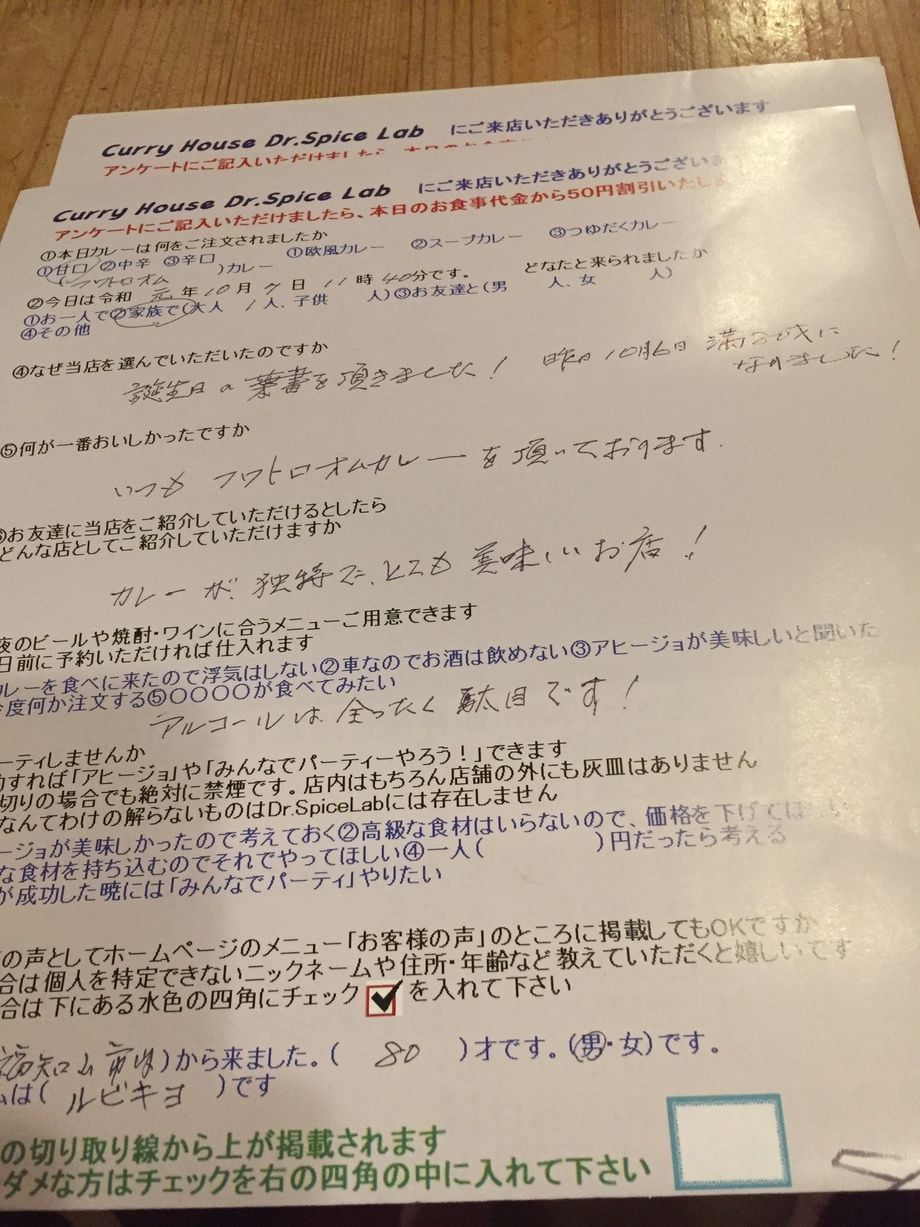 Curry House Dr.Spice Lab にご来店いただきありがとうございます
アンケートにご記入いただけましたら
Curry House Dr.Spice Lab にご来店いただきありがとうございま
アンケートにご記入いただけましたら、本日のお食事代金から50円割引いたしま
①本日カレーは何をご注文されましたか
①甘口 ②中辛 ③辛口 ①欧風カレー ②スープカレー ③つゆだくカレー
フワトロオム )カレー
②今日は令和 元年10月7日11時40分です。 どなたと来られましたか
①お一人で②家族で(大人 1人、子供 人)③お友達と(男 人、女 人)
④その他
④なぜ当店を選んでいただいたのですか
誕生日の葉書を頂きました! 昨日10月6日 満80歳に
なりました!
⑤何が一番おいしかったですか
いつも フワトロオムカレーを頂いております.
⑥お友達に当店をご紹介していただけるとしたら
どんな店としてご紹介していただけますか
カレーが、独特で、とても美味しいお店!
夜のビールや焼酎・ワインに合うメニューご用意できます
日前に予約いただければ仕入れます
レーを食べに来たので浮気はしない②車なのでお酒は飲めない③アヒージョが美味しいと聞いた
今度何か注文する⑤〇〇〇〇が食べてみたい
アルコールは全ったく駄目です!
ーティしませんか
すれば「アヒージョ」や「みんなでパーティーやろう!」できます
切りの場合でも絶対に禁煙です。店内はもちろん店舗の外にも灰皿はありません
なんてわけの解らないものはDr.SpiceLabには存在しません
ージョが美味しかったので考えておく②高級な食材はいらないので、価格を下げてほ
な食材を持ち込むのでそれでやってほしい④一人( )円だったら考える
が成功した暁には「みんなでパーティ」やりたい
の声としてホームページのメニュー「お客様の声」のところに掲載してもOKですか
合は個人を特定できないニックネームや住所・年齢など教えていただくと嬉しいです
合は下にある水色の四角にチェック を入れて下さい
福知山市内)から来ました。( 80 )才です。(男・女)です。
ムは( ルビキヨ )です
の切り取り線から上が掲載されます
ダメな方はチェックを右の四角の中に入れて下さい